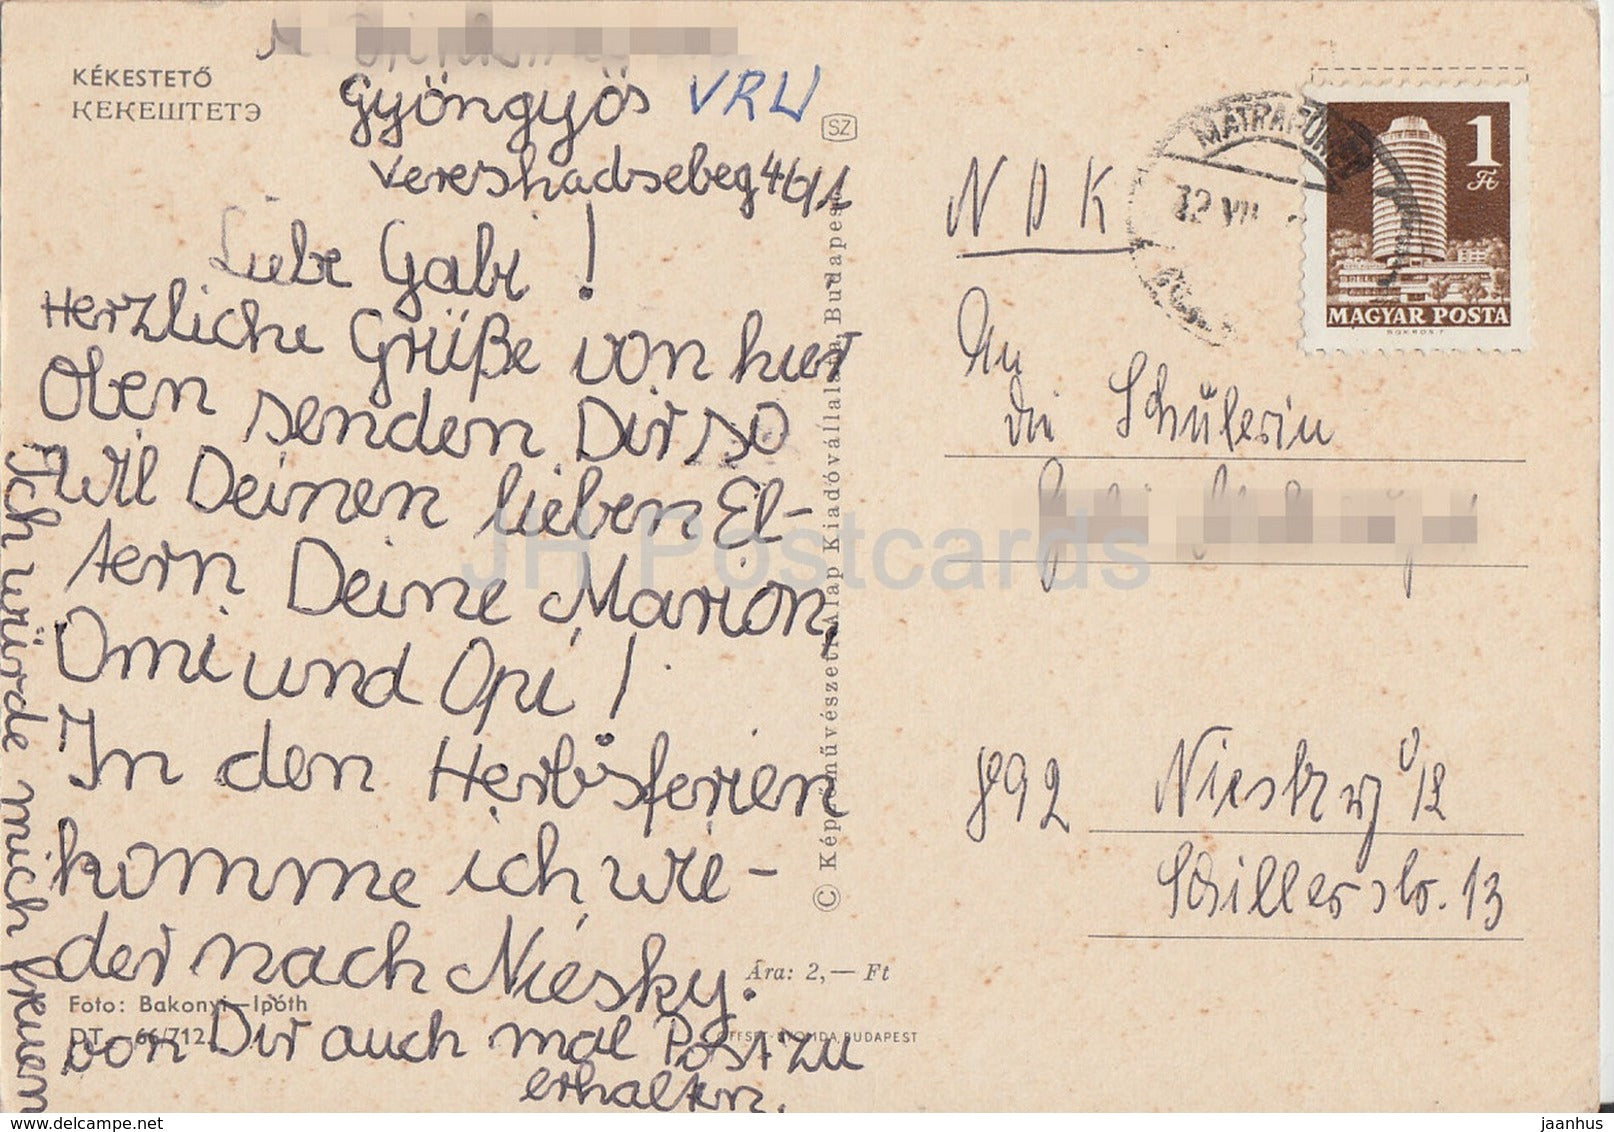 KÉKESTETŐ
КЕКЕШТЕТЭ
Gyöngyös VRU
Vereshadsebeg 46/1
SZ
Liebe Gabi!
Herzliche Grüße von hier
Oben senden Dir so
wil Deinen lieben El-
tern Deine Marion,
Omi und Opi!
In den Herbsferien
komme ich wie-
der nach Niesky.
Ich würde mich freuen
von Dir auch mal Post zu
erhalten.
Foto: Bakonyi—Ipóth
DT. 66/712.
Ára: 2,— Ft
OFFSET-NYOMDA, BUDAPEST
© Képzőművészeti Alap Kiadóvállalata, Budapest
NDK
MÁTRAFÜRED
72 VII
1
Ft
MAGYAR POSTA
An
die Schülerin
892 Niesky O/L
Schillerstr. 13
JH Postcards
delcampe.net
jaanhus